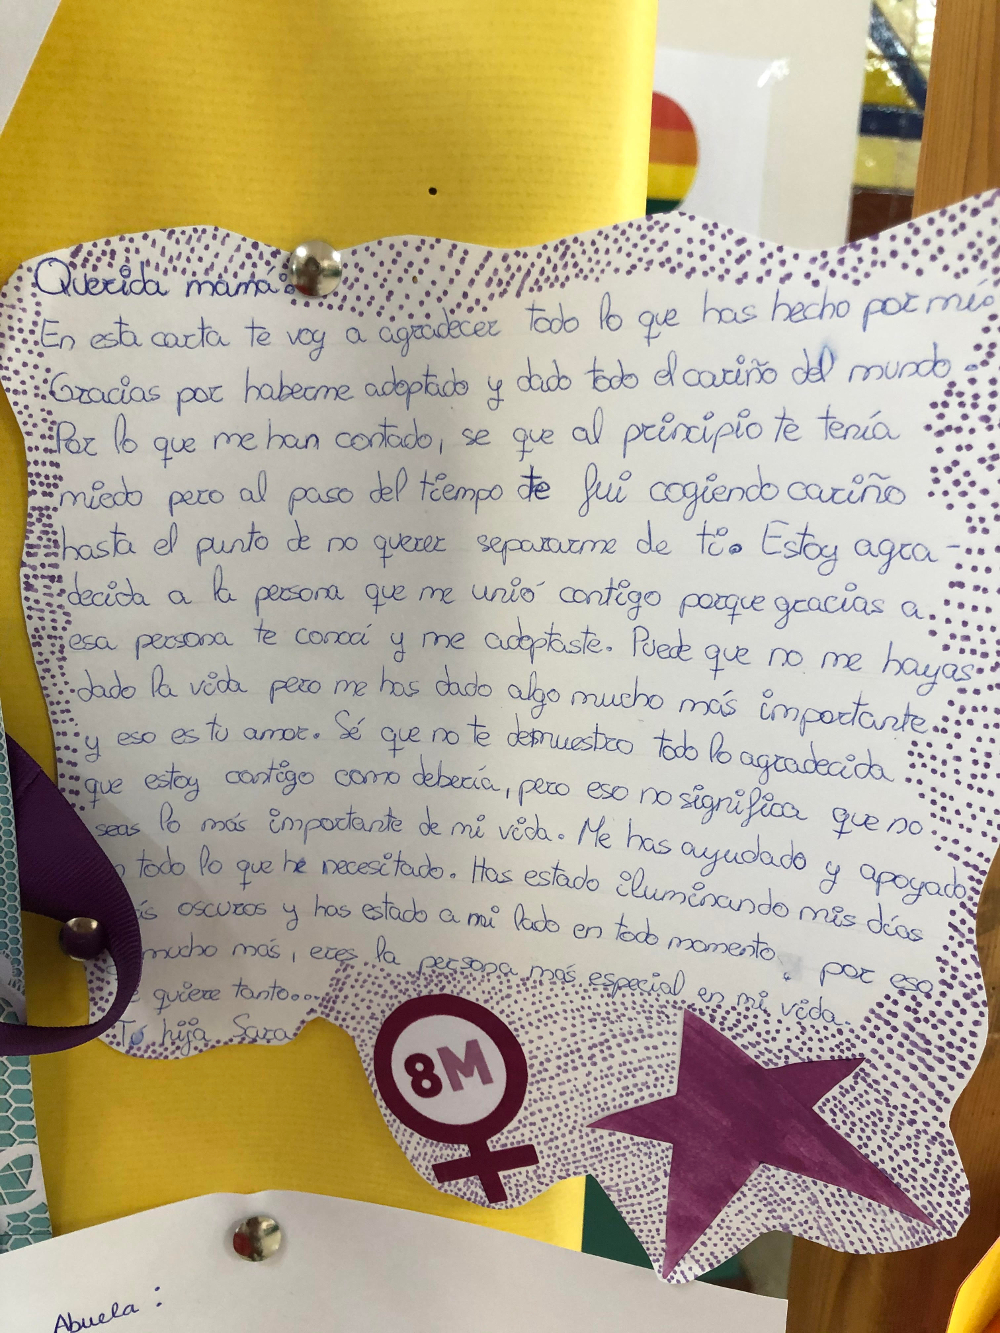 Querida mamá:
En esta carta te voy a agradecer todo lo que has hecho por mí.
Gracias por haberme adoptado y dado todo el cariño del mundo.
Por lo que me han contado, se que al principio te tenía
miedo pero al paso del tiempo te fui cogiendo cariño
hasta el punto de no querer separarme de ti. Estoy agra-
decida a la persona que me unió contigo porque gracias a
esa persona te conocí y me adoptaste. Puede que no me hayas
dado la vida pero me has dado algo mucho más importante
y eso es tu amor. Sé que no te demuestro todo lo agradecida
que estoy contigo como debería, pero eso no significa que no
seas lo más importante de mi vida. Me has ayudado y apoyado
todo lo que he necesitado. Has estado iluminando mis días
oscuros y has estado a mi lado en todo momento, por eso
mucho más, eres la persona más especial en mi vida.
quiere tanto...
Tu hija Sara
8M
Abuela: